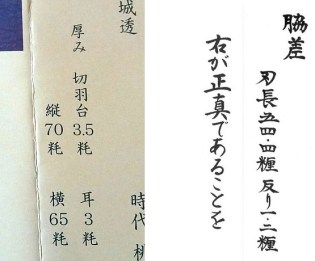 脇差
刄長五四・四糎 反り一・二糎
右が正真であることを
城透 時代 桃
厚み 切羽台3.5粍 耳3粍
縦70粍 横65粍